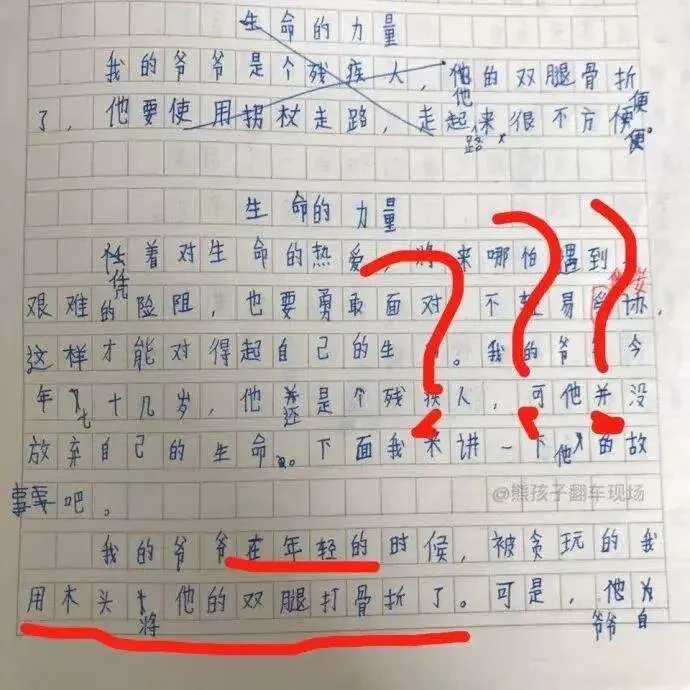 生命的力量
我的爷爷是个残疾人，他的双腿骨折
了，他要使用拐杖走路，走起路来很不方便。
生命的力量
凭着对生命的热爱，将来哪怕遇到
艰难的险阻，也要勇敢面对，不轻易妥协，
这样才能对得起自己的生。我的爷今
年七十几岁，他还是个残疾人，可他并没
放弃自己的生命。下面我来讲一下他的故
事吧。
@熊孩子翻车现场
我的爷爷在年轻的时候，被贪玩的我
用木头将他的双腿打骨折了。可是，爷爷